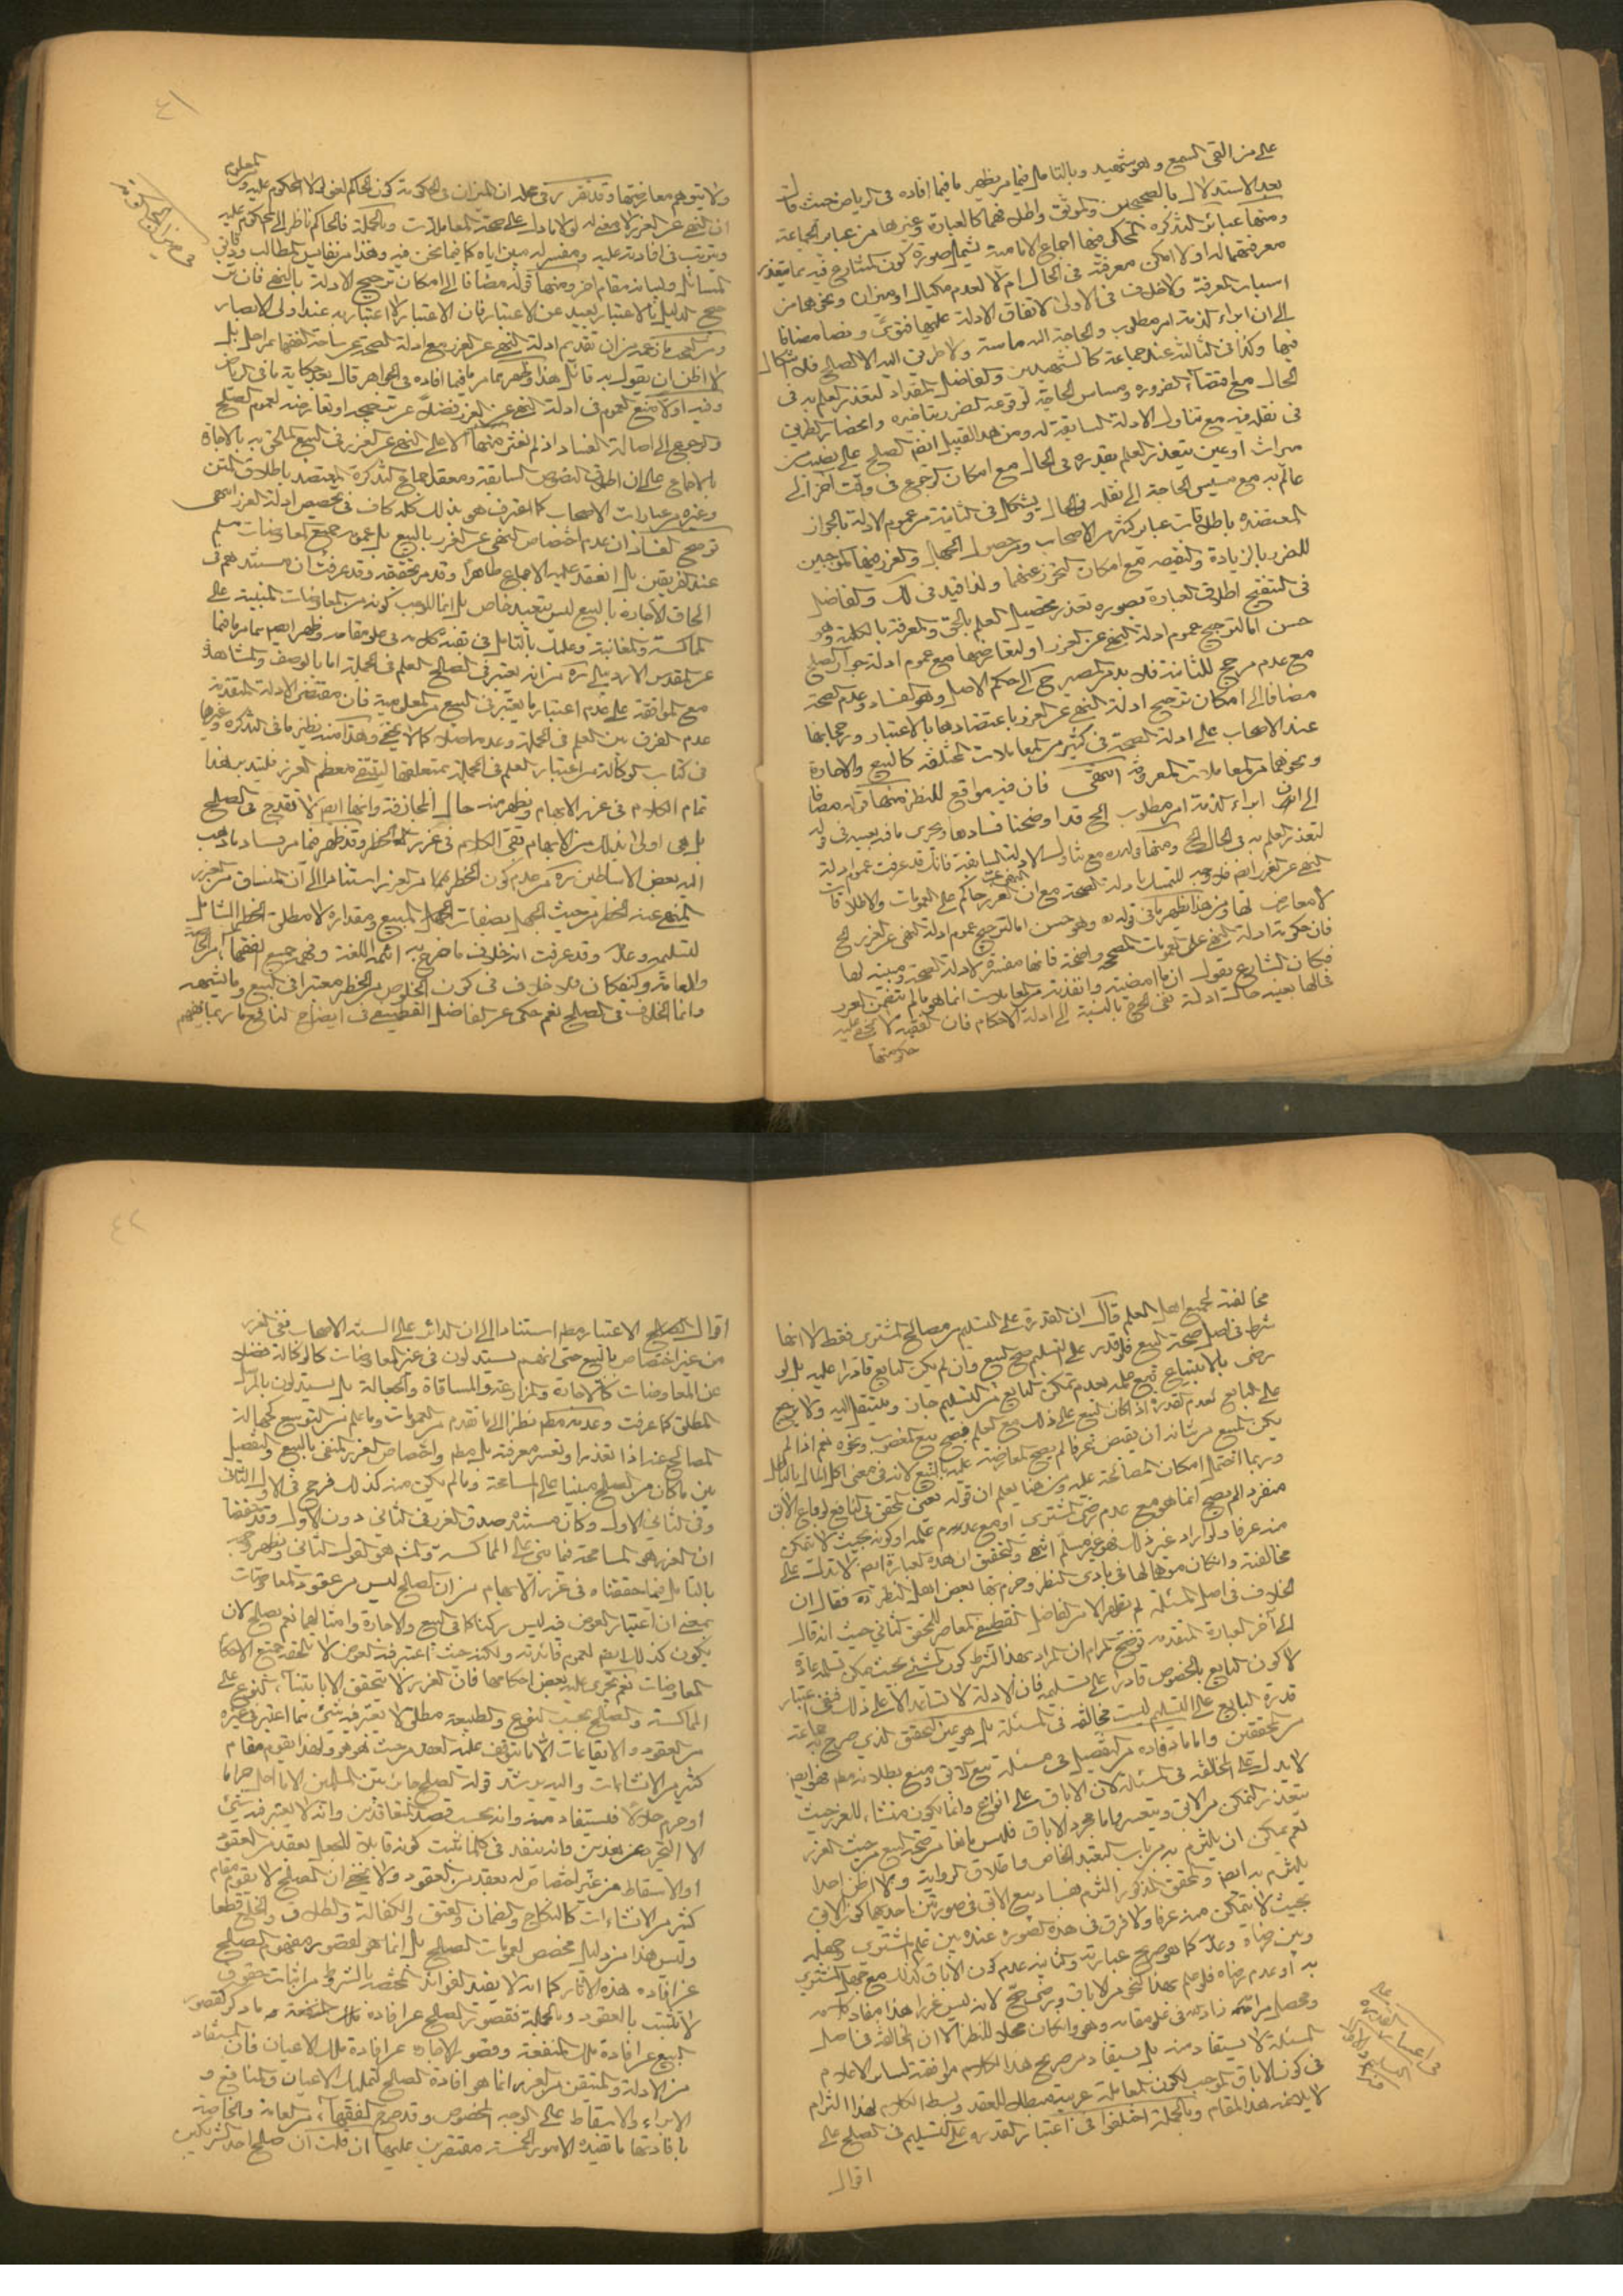 على من القى السمع وهو شهيد وبالتامل فيما مر يظهر ما فيما افاده في الرياض حيث قال
بعد الاستدلال بالصحيحين والموثق واطلاقهما كالعبارة وغيرها من عبائر الجماعة
ومنها عبائر التذكرة المحكى فيها اجماع الامامية يشمل صورة كون المتنازع فيه مما يتعذر
معرفتهما له او لا امكن معرفته في الحال ام لا لعدم مكيال او ميزان ونحوهما من
اسباب المعرفة ولا خلاف في الاولى لاتفاق الادلة عليها فتوى ونصا مضافا
الى ان ابراء الذمة امر مطلوب والحاجة اليه ماسة ولا طريق اليه الا الصلح فلا اشكال
فيها وكذا في الثالثة عند جماعة كالشهيدين والفاضل المقداد لتعذر العلم به في
الحال مع اقتضاء الضرورة ومساس الحاجة لوقوعه والضرر بتاخيره وانحصار الطريق
في نقله فيه مع تناول الادلة السابقة له ومن هذا القبيل ايضا الصلح على نصيب من
ميراث او عين يتعذر العلم بقدره في الحال مع امكان الرجوع في وقت آخر الى
عالم به مع مسيس الحاجة الى نقله في الحال ويشكل في الثانية من عموم الادلة بالجواز
المعتضدة باطلاقات عبائر كثير من الاصحاب ومن حصول الجهل والغرر فيها الموجبين
للضرر بالزيادة والنقيصة مع امكان التحرز عنهما ولذا قيد في لك والفاضل
في التنقيح اطلاق العبارة بصورة تعذر تحصيل العلم بالحق والمعرفة بالكلية وهو
حسن اما لترجيح عموم ادلة النهي عن الغرر او لتعارضها مع عموم ادلة جواز الصلح
مع عدم مرجح للثانية فلا بد من المصير ح الى حكم الاصل وهو الفساد وعدم الصحة
مضافا الى امكان ترجيح ادلة النهي عن الغرر باعتضادها بالاعتبار ورجحانها
عند الاصحاب على ادلة الصحة في كثير من المعاملات المختلفة كالبيع والاجارة
ونحوهما من المعاملات المعروفة انتهى فان فيه مواقع للنظر منها قوله مضافا
الى ان ابراء الذمة امر مطلوب الخ قد اوضحنا فسادها ويجرى ما فيه بعينه في قوله
لتعذر العلم به في الحال الخ ومنها قوله مع تناول الادلة السابقة فانك قد عرفت عموم ادلة
النهي عن الغرر ايضا فلا وجه للتمسك بادلة الصحة مع ان الغرر حاكم على العمومات والاطلاقات
لا معارض لها ومن هذا يظهر ما في قوله وهو حسن اما لترجيح عموم ادلة النهي عن الغرر الخ
فان حكومة ادلة النهي على العمومات المصححة واضحة فانها مفسرة لادلة الصحة ومبينة لها
فكان الشارع يقول ان ما امضيته وانفذته من المعاملات انما هو ما لم يتضمن الغرر
فحالها بعينه حال ادلة نفي الحرج بالنسبة الى ادلة الاحكام فان الفقيه لا يخفى عليه
حكومتها
٤١
ولا يتوهم معارضتها وقد تقرر في محله ان الميزان في الحكومة كون الحاكم لغوا لولا المحكوم عليه
ان النهي عن الغرر لا معنى له لولا ما دل على صحة المعاملات وبالجملة فالحاكم ناظر الى المحكوم عليه
ويترتب في افادته عليه ومفسر له مبين اياه كما فيما نحن فيه وهذا من نفايس المطالب ودقايق
المسائل ولبيانه مقام آخر ومنها قوله مضافا الى امكان ترجيح الادلة بالنهي فان من
رجح الدليل بالاعتبار بعيد عن الاعتبار فان الاعتبار لا اعتبار به عند اولى الابصار
ومن العجب ما زعمه من ان تقديم ادلة النهي عن الغرر مع ادلة الصحة من ساحة الفقهاء بمراحل بل
لا اظن ان يقول به قائل هذا وظهر مما مر ما فيما افاده في الجواهر قال بعد حكاية ما في الرياض
وفيه اولا منع العموم في ادلة النهي عن الغرر فضلا عن ترجيحه او تعارضه لعموم الصلح
والرجوع الى اصالة الفساد اذ لم نعثر منها الا على النهي عن الغرر في البيع الملحق به الاجارة
بالاجماع على ان اطلاق النصوص السابقة ومعقد اجماع التذكرة المعتضد باطلاق المتن
وغيره من عبارات الاصحاب كما اعترف هو بذلك كله كاف في تخصيص ادلة الغرر انتهى
توضيح الفساد ان عدم اختصاص النهي عن الغرر بالبيع بل عمومه جميع المعاوضات مسلم
عند الفريقين بل انعقد عليه الاجماع ظاهرا وقد مر تحقيقه وقد عرفت ان مستندهم في
الحاق الاجارة بالبيع ليس تعبد خاص بل انما الموجب كونه من المعاوضات المبنية على
المماكسة والمغابنة وعليك بالتامل في تضييق كلامه في علو مقامه وظهر ايضا مما مر ما فيما
عن المقدس الاردبيلي ره من انه يعتبر في الصلح العلم في الجملة اما بالوصف والمشاهدة
مع الموافقة على عدم اعتبار ما يعتبر في البيع من المعلومية فان مقتضى الادلة المتقدمة
عدم الفرق بين العلم في الجملة وعدمه اصلا كما لا يخفى وهذا منه نظير ما في التذكرة وغيرها
في كتاب الوكالة من اعتبار العلم في الجملة بمتعلقها لينتفي معظم الغرر فليتدبر هذا
تمام الكلام في غرر الابهام ويظهر منه حال المجازفة وانها ايضا لا تقدح في الصلح
بل هي اولى بذلك من الابهام بقى الكلام في غرر الخطر وقد ظهر مما مر فساد ما ذهب
اليه بعض الاساطين ره من عدم كون الخطر مما من الغرر استنادا الى ان المنساق من الغرر
المنهي عنه الخطر من حيث الجهل بصفات المبيع ومقداره لا مطلق الخطر الشامل
لتسليمه وعدمه وقد عرفت انه خلاف ما صرح به ائمة اللغة وفهم جميع الفقهاء من الخاصة
والعامة وكيف كان فلا خلاف في كون الخلوص من الخطر معتبرا في البيع وما اشبهه
وانما الخلاف في الصلح نعم حكى عن الفاضل القطيفي في ايضاح النافع ما ربما يفهم
مخالفته لجميع اهل العلم قال ان القدرة على التسليم من مصالح المشتري فقط لا انها
شرط في اصل صحة البيع فلو قدر على التسليم صح البيع وان لم يكن البايع قادرا عليه بل لو
رضى بالابتياع مع علمه بعدم تمكن البايع من التسليم جاز وينتقل اليه ولا يرجع
على البايع لعدم القدرة اذا كان البيع على ذلك مع العلم فيصح بيع المغصوب ونحوه نعم اذا لم
يكن المبيع من شانه ان يقبض عرفا لم يصح المعاوضة عليه بالبيع لانه في معنى اكل المال بالباطل
وربما احتمل امكان المصالحة عليه ومن هنا يعلم ان قوله يعني المحقق في النافع لو باع الآبق
منفردا لم يصح انما هو مع عدم رضى المشتري او مع عدم علمه او كونه بحيث لا يتمكن
منه عرفا ولو اراد غير ذلك فهو غير مسلم انتهى والتحقيق ان هذه العبارة ايضا لا تدل على
مخالفته وان كان موهما لها في بادي النظر وجزم بها بعض اهل النظر ره فقال ان
الخلاف في اصل المسئلة لم يظهر الا من الفاضل القطيفي المعاصر للمحقق الثاني حيث انه قال
الى آخر العبارة المتقدمة توضيح المرام ان المراد بهذا الشرط كون الشيء بحيث يمكن تسلمه عادة
لا كون البايع بالخصوص قادرا على تسليمه فان الادلة لا تساعد الا على ذلك فنفى اعتبار
قدرة البايع على التسليم ليست مخالفة في المسئلة بل هو عين التحقيق الذي صرح به جماعة
من المحققين واما ما افاده من التفصيل في مسئلة بيع الآبق ومنع بطلانه مطلقا فهو ايضا
لا يدل على المخالفة في المسئلة لان الاباق على انواع وانما يكون منشاء للغرر حيث
يتعذر التمكن من الآبق ويتعسر واما مجرد الاباق فليس مانعا من صحة البيع من حيث الغرر
نعم يمكن ان يلتزم به من باب التعبد الخاص واطلاق الرواية ولا اظن احدا
يلتزم به ايضا والمحقق المذكور التزم بفساد بيع الآبق في صورتين احديهما كون الآبق
بحيث لا يتمكن منه عرفا ولا فرق في هذه الصورة عنده بين علم المشتري وجهله
وبين رضاه وعدمه كما هو صريح عبارته والثانية عدم كون الاباق كذلك مع جهل المشتري
به او عدم رضاه فلو علم بهذا النحو من الاباق ورضى صح لانه ليس غررا هذا مفاد كلامه
ومحصل مرامه زاد الله في علو مقامه وهو وان كان محلا للنظر الا ان المخالفة في اصل
المسئلة لا يستفاد منه بل يستفاد من صريح هذا الكلام موافقته لساير الاعلام
في كون الاباق الموجب لكون المعاملة غررية مبطلا للعقد وبسط الكلام لهذا المرام
لا يلايمه هذا المقام وبالجملة اختلفوا في اعتبار القدرة على التسليم في الصلح على
اقوال
٤٢
اقوال الاعتبار مطلقا استنادا الى ان الدائر على السنة الاصحاب نفي الغرر
من غير اختصاص بالبيع حتى انهم يستدلون في غير المعاوضات كالوكالة فضلا
عن المعاوضات كالاجارة والمزارعة والمساقاة والجعالة بل يستدلون بالمرسل
المطلق كما عرفت وعدمه مطلقا نظرا الى ما تقدم من العمومات وما علم من التوسيع لجهالة
المصالح عنه اذا تعذر او تعسر معرفته بل مطلقا واختصاص الغرر المنفي بالبيع والتفصيل
بين ما كان من الصلح مبنيا على المسامحة وما لم يكن منه كذلك فرجح في الاول الثاني
وفي الثاني الاول وكان مستنده صدق الغرر في الثاني دون الاول وقد حققنا
ان الغرر هو المسامحة فيما بنى على المماكسة والمتجه هو القول الثاني ويظهر وجهه
بالتامل فيما حققناه في غرر الابهام من ان الصلح ليس من عقود المعاوضات
بمعنى ان اعتبار العوض فيه ليس ركنا كما في البيع والاجارة وامثالهما نعم يصلح لان
يكون كذلك ايضا لعموم فائدته ولكنه حيث اعتبر فيه العوض لا يلحقه جميع الاحكام
المعاوضات نعم يجرى عليه بعض احكامها فان الغرر لا يتحقق الا بابتناء النوع على
المماكسة والصلح بحسب النوع والطبيعة مطلق لا يعتبر فيه شيء مما اعتبر في غيره
من العقود والايقاعات الا ما يتوقف عليه العقد من حيث هو هو ولهذا يقوم مقام
كثير من الانشاءات واليه يرشد قوله الصلح جائز بين المسلمين الا ما احل حراما
او حرم حلالا فيستفاد منه وانه بحسب قصد المتعاقدين وانه لا يعتبر فيه شيء
الا التحرز عن هذين وانه ينفذ في كلما يثبت كونه قابلا للجعل بعقد من العقود
او الاسقاط من غير اختصاص له بعقد من العقود ولا يخفى ان الصلح لا يقوم مقام
كثير من الانشاءات كالنكاح والضمان والعتق والكفالة والطلاق والخلع قطعا
وليس هذا من دليل مخصص لعمومات الصلح بل انما هو لقصور مفهوم الصلح
عن افادة هذه الاثار كما انه لا يفيد الفوائد المختصة بالشروط من اثبات حقوق
لا تثبت بالعقود وبالجملة فقصور الصلح عن افادة تلك ما ذكر كقصور
البيع عن افادة ملك المنفعة وقصور الاجارة عن افادة ملك الاعيان فان المستفاد
من الادلة والمتيقن من الغرر انما هو افادة الصلح لتمليك الاعيان والمنافع و
الابراء والاسقاط على الوجه المخصوص وقد صرح الفقهاء من العامة والخاصة
بافادتها ما تفيده الامور الخمسة مقتصرين عليها ان قلت ان صلح احد الشريكين